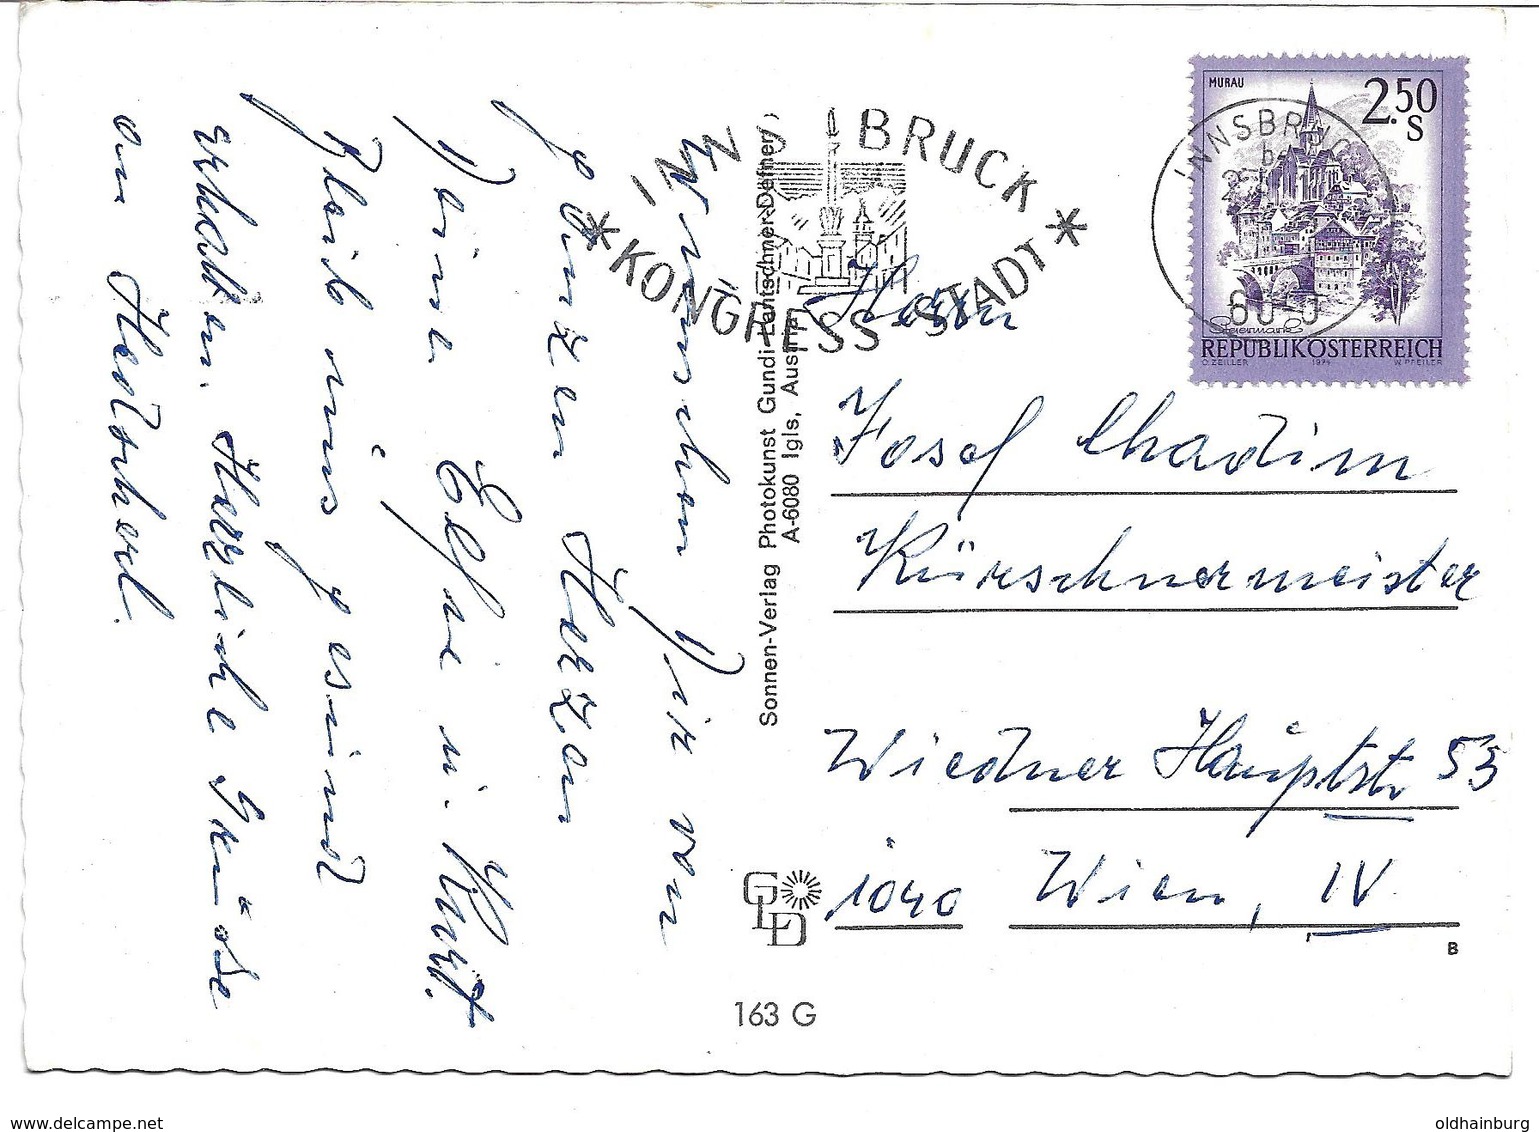 Wünschen Dir von
ganzen Herzen
Deine Elfie u. Kurt.
Bleib uns gesund
erhalten. Herzliche Grüße
an Hedscherl.
Sonnen-Verlag Photokunst Gundi Lentschner-Defner,
A-6080 Igls, Austria
INNSBRUCK
* KONGRESS-STADT *
MURAU
2.50
S
INNSBRUCK
b
Steiermark
REPUBLIK ÖSTERREICH
O. ZEILLER 1974 W. PFEILER
Herrn
Josef Chadim
Kürschnermeister
Wiedner Hauptstr. 53
1040 Wien, IV
GLD
B
163 G
www.delcampe.net
oldhainburg